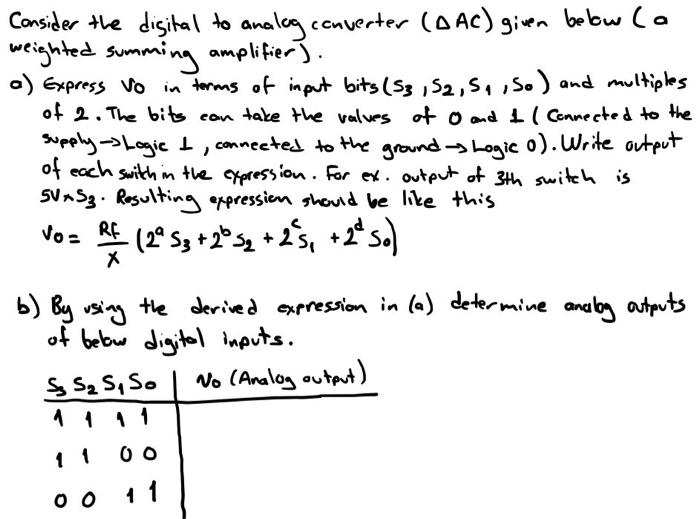 Consider the digital to analog converter (DAC) given below (a
weighted summing amplifier).
a) Express Vo in terms of input bits (S3, S2, S1, So) and multiples
of 2. The bits can take the values of 0 and 1 (Connected to the
supply→Logic 1, connected to the ground→Logic 0). Write output
of each switch in the expression. For ex. output of 3th switch is
5V×S3. Resulting expression should be like this
Vo = Rf/X (2^a S3 + 2^b S2 + 2^c S1 + 2^d So)
b) By using the derived expression in (a) determine analog outputs
of below digital inputs.
S3 S2 S1 So | Vo (Analog output)
1 1 1 1
1 1 0 0
0 0 1 1